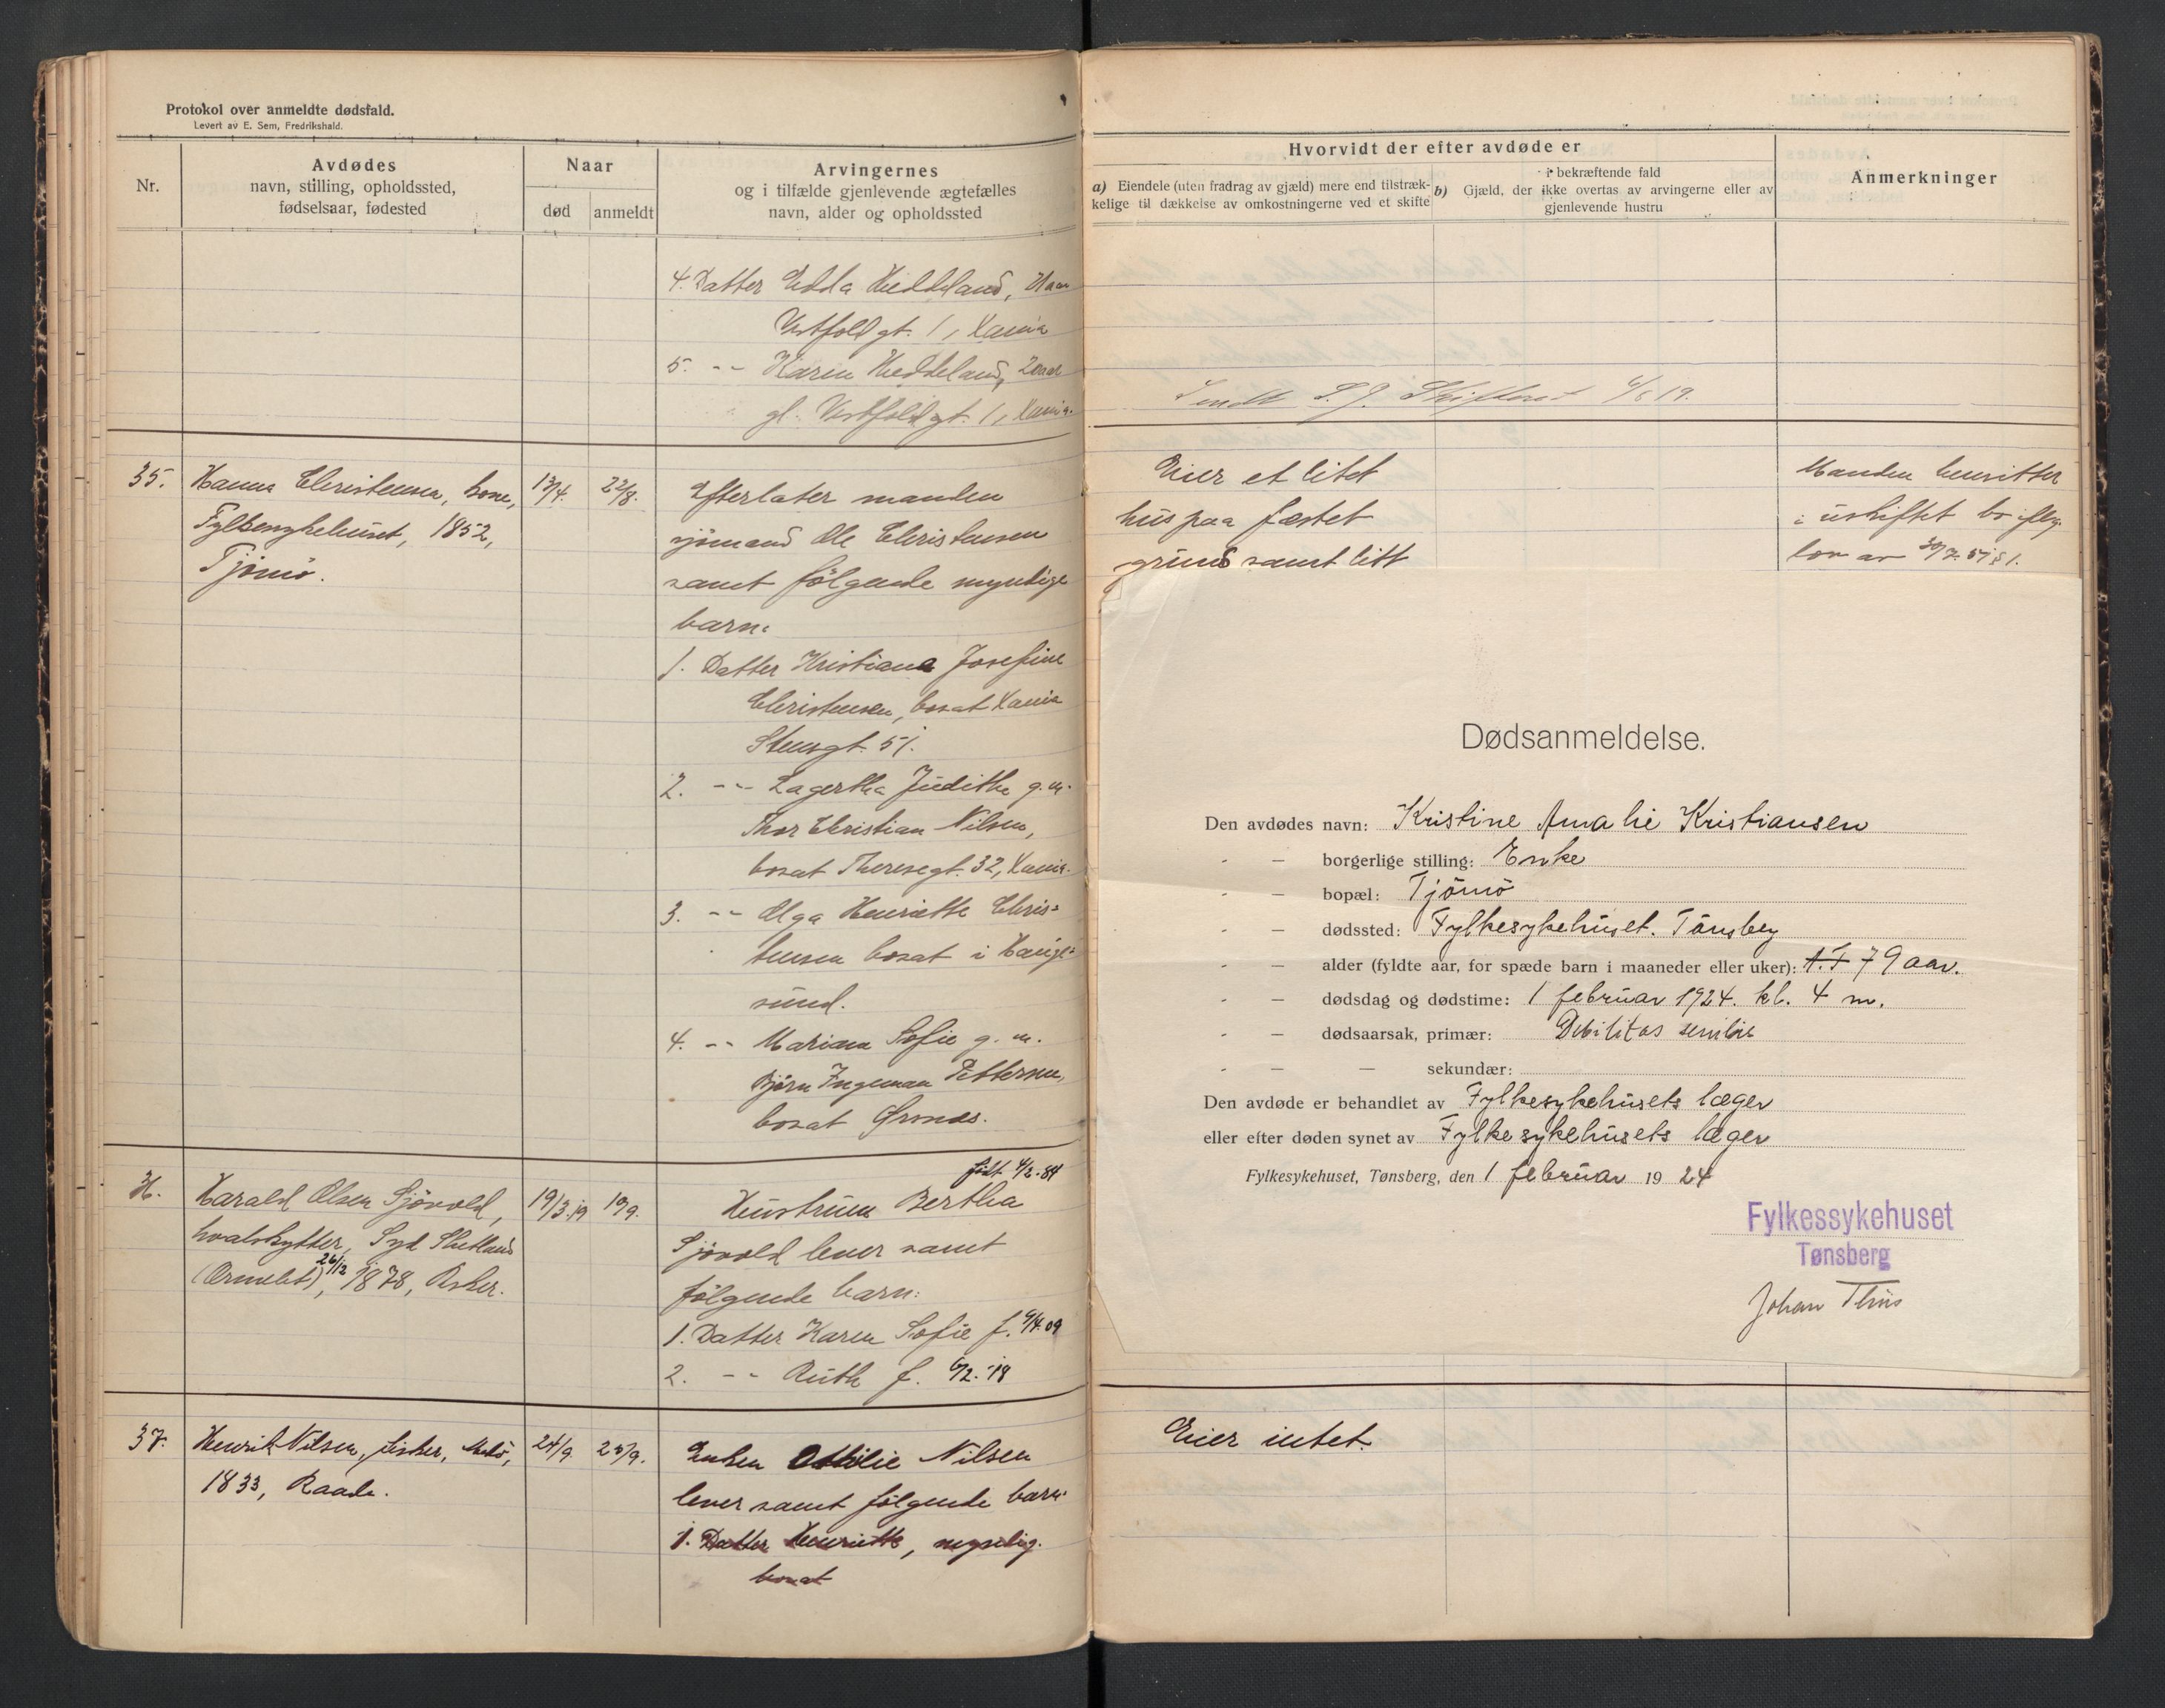 Protokol over anmeldte dødsfald.
Levert av E. Sem, Fredrikshald.
Nr.
Avdødes
navn, stilling, opholdssted,
fødselsaar, fødested
Naar
død
anmeldt
Arvingernes
og i tilfælde gjenlevende ægtefælles
navn, alder og opholdssted
4. Datter Edda Heddeland,
Vestfoldgt. 1, Xania
5. -"- Karin Heddeland, 2 aar
gl. Vestfoldgt. 1, Xania.
35. Hanna Christensen, kone,
Fylkessykehuset, 1852,
Tjømø.
13/4. 22/8.
Efterlater manden
sjømand Ole Christensen
samt følgende myndige
barn:
1. Datter Kristiana Josefine
Christensen, bosat Xania
Stensgt. 51.
2. -"- Lagertha Judithe g. m.
Thor Christian Nilsen,
bosat Theresegt. 32, Xania.
3. -"- Olga Henriette Chris-
tensen bosat i Hauge-
sund.
4. -"- Mariane Sofie g. m.
Bjørn Ingeman Pettersen,
bosat
36. Harald Olsen Sjövold,
hvalskytter, Syd Shetland
(Ørnelet), 26/12 1878, Asker.
19/3.19 19/9.
født 4/2-84
Hustruen Bertha
Sjövold lever samt
følgende barn:
1. Datter Karen Sofie f. 9/4.09
2. -"- Ruth f. 6/2.-18
37. Henrik Nilsen, fisker,
1833, Raade.
24/9. 25/9.
Enken Ottilie Nilsen
lever samt følgende barn:
1. Datter Henriette, myndig.
bosat
Hvorvidt der efter avdøde er
a) Eiendele (uten fradrag av gjæld) mere end tilstræk-
kelige til dækkelse av omkostningerne ved et skifte
b) Gjæld, der i bekræftende fald
ikke overtas av arvingerne eller av
gjenlevende hustru
Anmerkninger
Sendt S. J. Skifteret 4/6 19.
Eier et litet
hus paa fæstet
grund samt litt
Manden hensitter
i uskiftet bo iflg.
lov av 30/7. 51 § 1.
Dødsanmeldelse.
Den avdødes navn: Kristine Amalie Kristiansen
- — borgerlige stilling: Enke
- — bopæl: Tjömö
- — dødssted: Fylkesykehuset. Tönsberg
- — alder (fyldte aar, for spæde barn i maaneder eller uker): 79 aar.
- — dødsdag og dødstime: 1 februar 1924. kl. 4 m.
- — dødsaarsak, primær: Debilitas senilis
- — — sekundær:
Den avdøde er behandlet av Fylkesykehusets læger
eller efter døden synet av Fylkesykehusets læger
Fylkesykehuset, Tønsberg, den 1 februar 1924
Fylkessykehuset
Tønsberg
Johan Thiis
Eier intet.